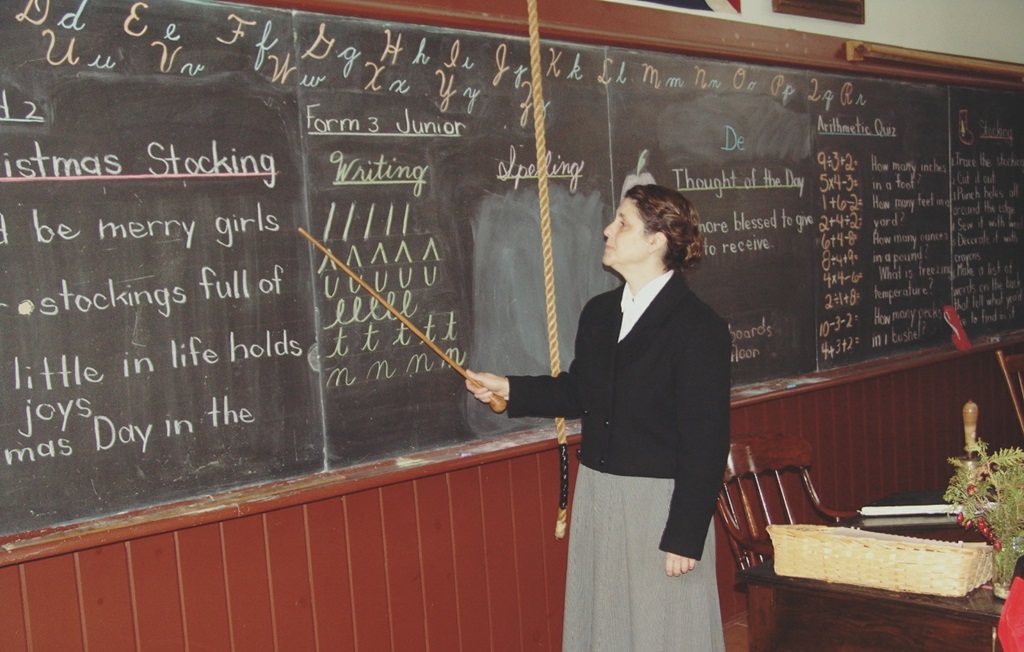 D d E e F f G g H h I i J j K k L l M m N n O o P p Q q R r
U u V v W w X x Y y Z
d 2
ristmas Stocking
be merry girls
stockings full of
little in life holds
joys
mas Day in the
Form 3 Junior
Writing
/ / / / / /
∧ ∧ ∧ ∧ ∧
U U U U U
lllllll
t t t t t
n n n n n
Spelling
De
Thought of the Day
more blessed to give
to receive.
boards
Arithmetic Quiz
9÷3+2=
5x4-3=
1+6-2=
2+4÷2=
6+4-8=
8÷4+9=
4x4-6=
2÷1+8=
10-3-2=
4+3+2=
How many inches
in a foot?
How many feet in a
yard?
How many ounces
in a pound?
What is freezing
temperature?
How many pecks
in a bushel?
Stocking
Trace the stocking
Cut it out
Punch holes all
around the edge
Sew it with
Decorate it with
crayons
Make a list of
words on the back
that tell what you'd
like to find in it